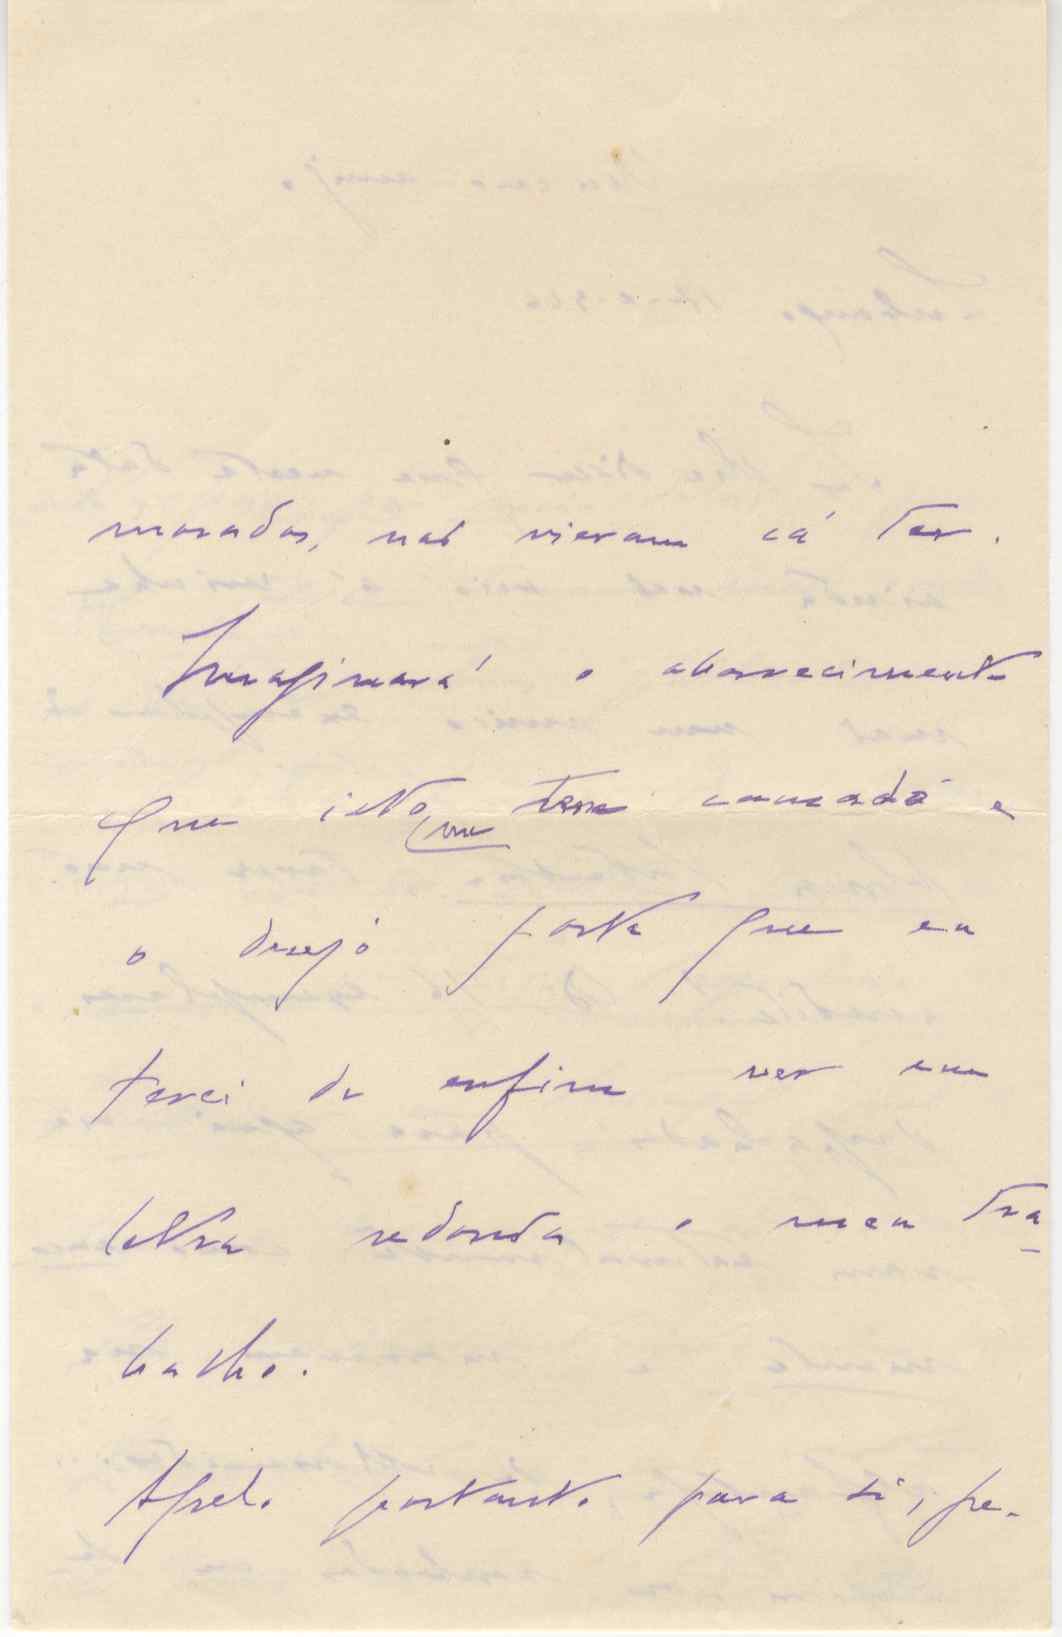 moradas, não vieram cá ter.
Imaginará o aborrecimento
que isto me tem causado e
o desejo
que eu
terei de enfim ver em
letra redonda o meu tra-
balho.
Apelo portanto para si, pe-